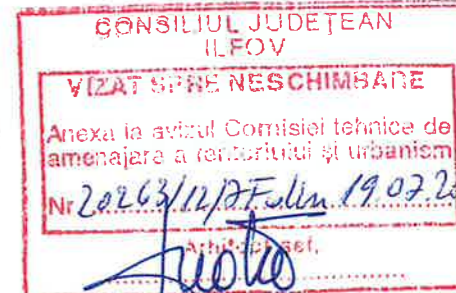 CONSILIUL JUDEȚEAN
ILFOV
VIZAT SPRE NESCHIMBARE
Anexa la avizul Comisiei tehnice de
amenajare a teritoriului și urbanism
Nr 20263/12/ 19.07.2
Arhitect șef,